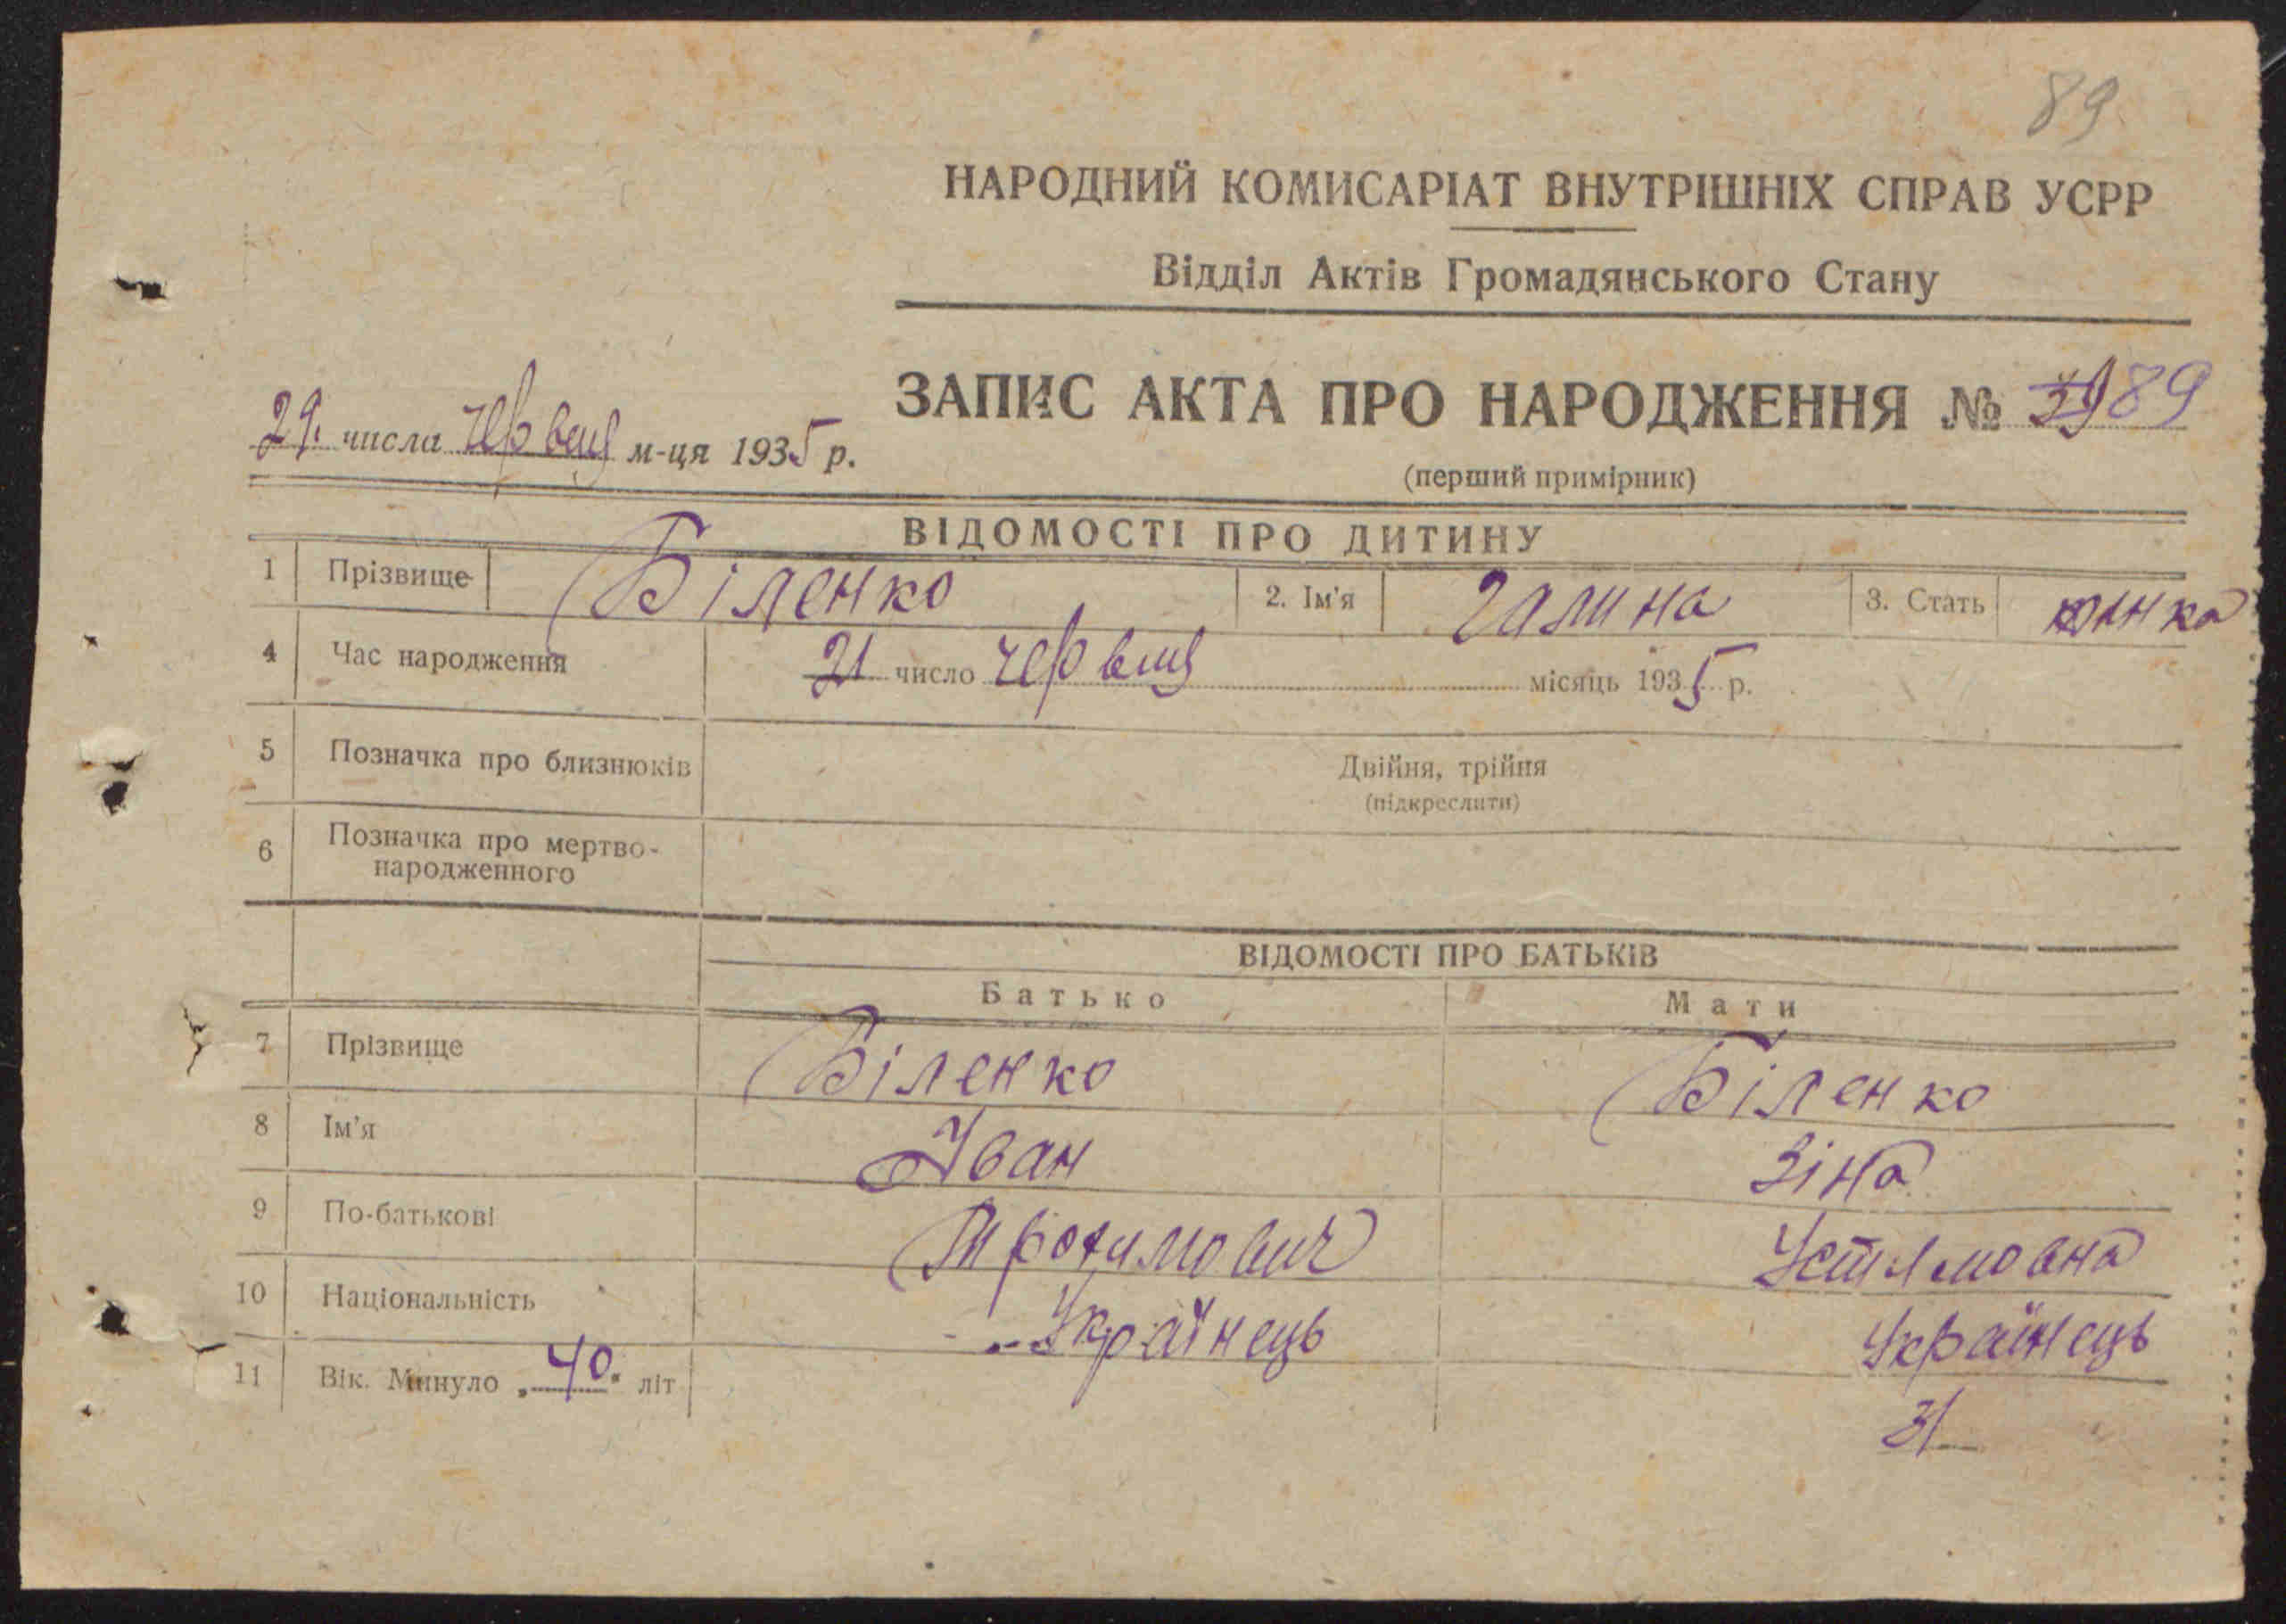 89
НАРОДНИЙ КОМИСАРІАТ ВНУТРІШНІХ СПРАВ УСРР
Відділ Актів Громадянського Стану
ЗАПИС АКТА ПРО НАРОДЖЕННЯ № 89
29. числа червця м-ця 1935 р.
(перший примірник)
ВІДОМОСТІ ПРО ДИТИНУ
1 Прізвище Біленко 2. Ім'я Галина 3. Стать жінка
4 Час народження 21 число червця місяць 1935 р.
5 Позначка про близнюків Двійня, трійня
(підкреслити)
6 Позначка про мертво-
народженного
ВІДОМОСТІ ПРО БАТЬКІВ
Батько Мати
7 Прізвище Біленко Біленко
8 Ім'я Іван Зіна
9 По-батькові Трофимович Устимовна
10 Національність Українець Українець
11 Вік. Минуло „40" літ 31